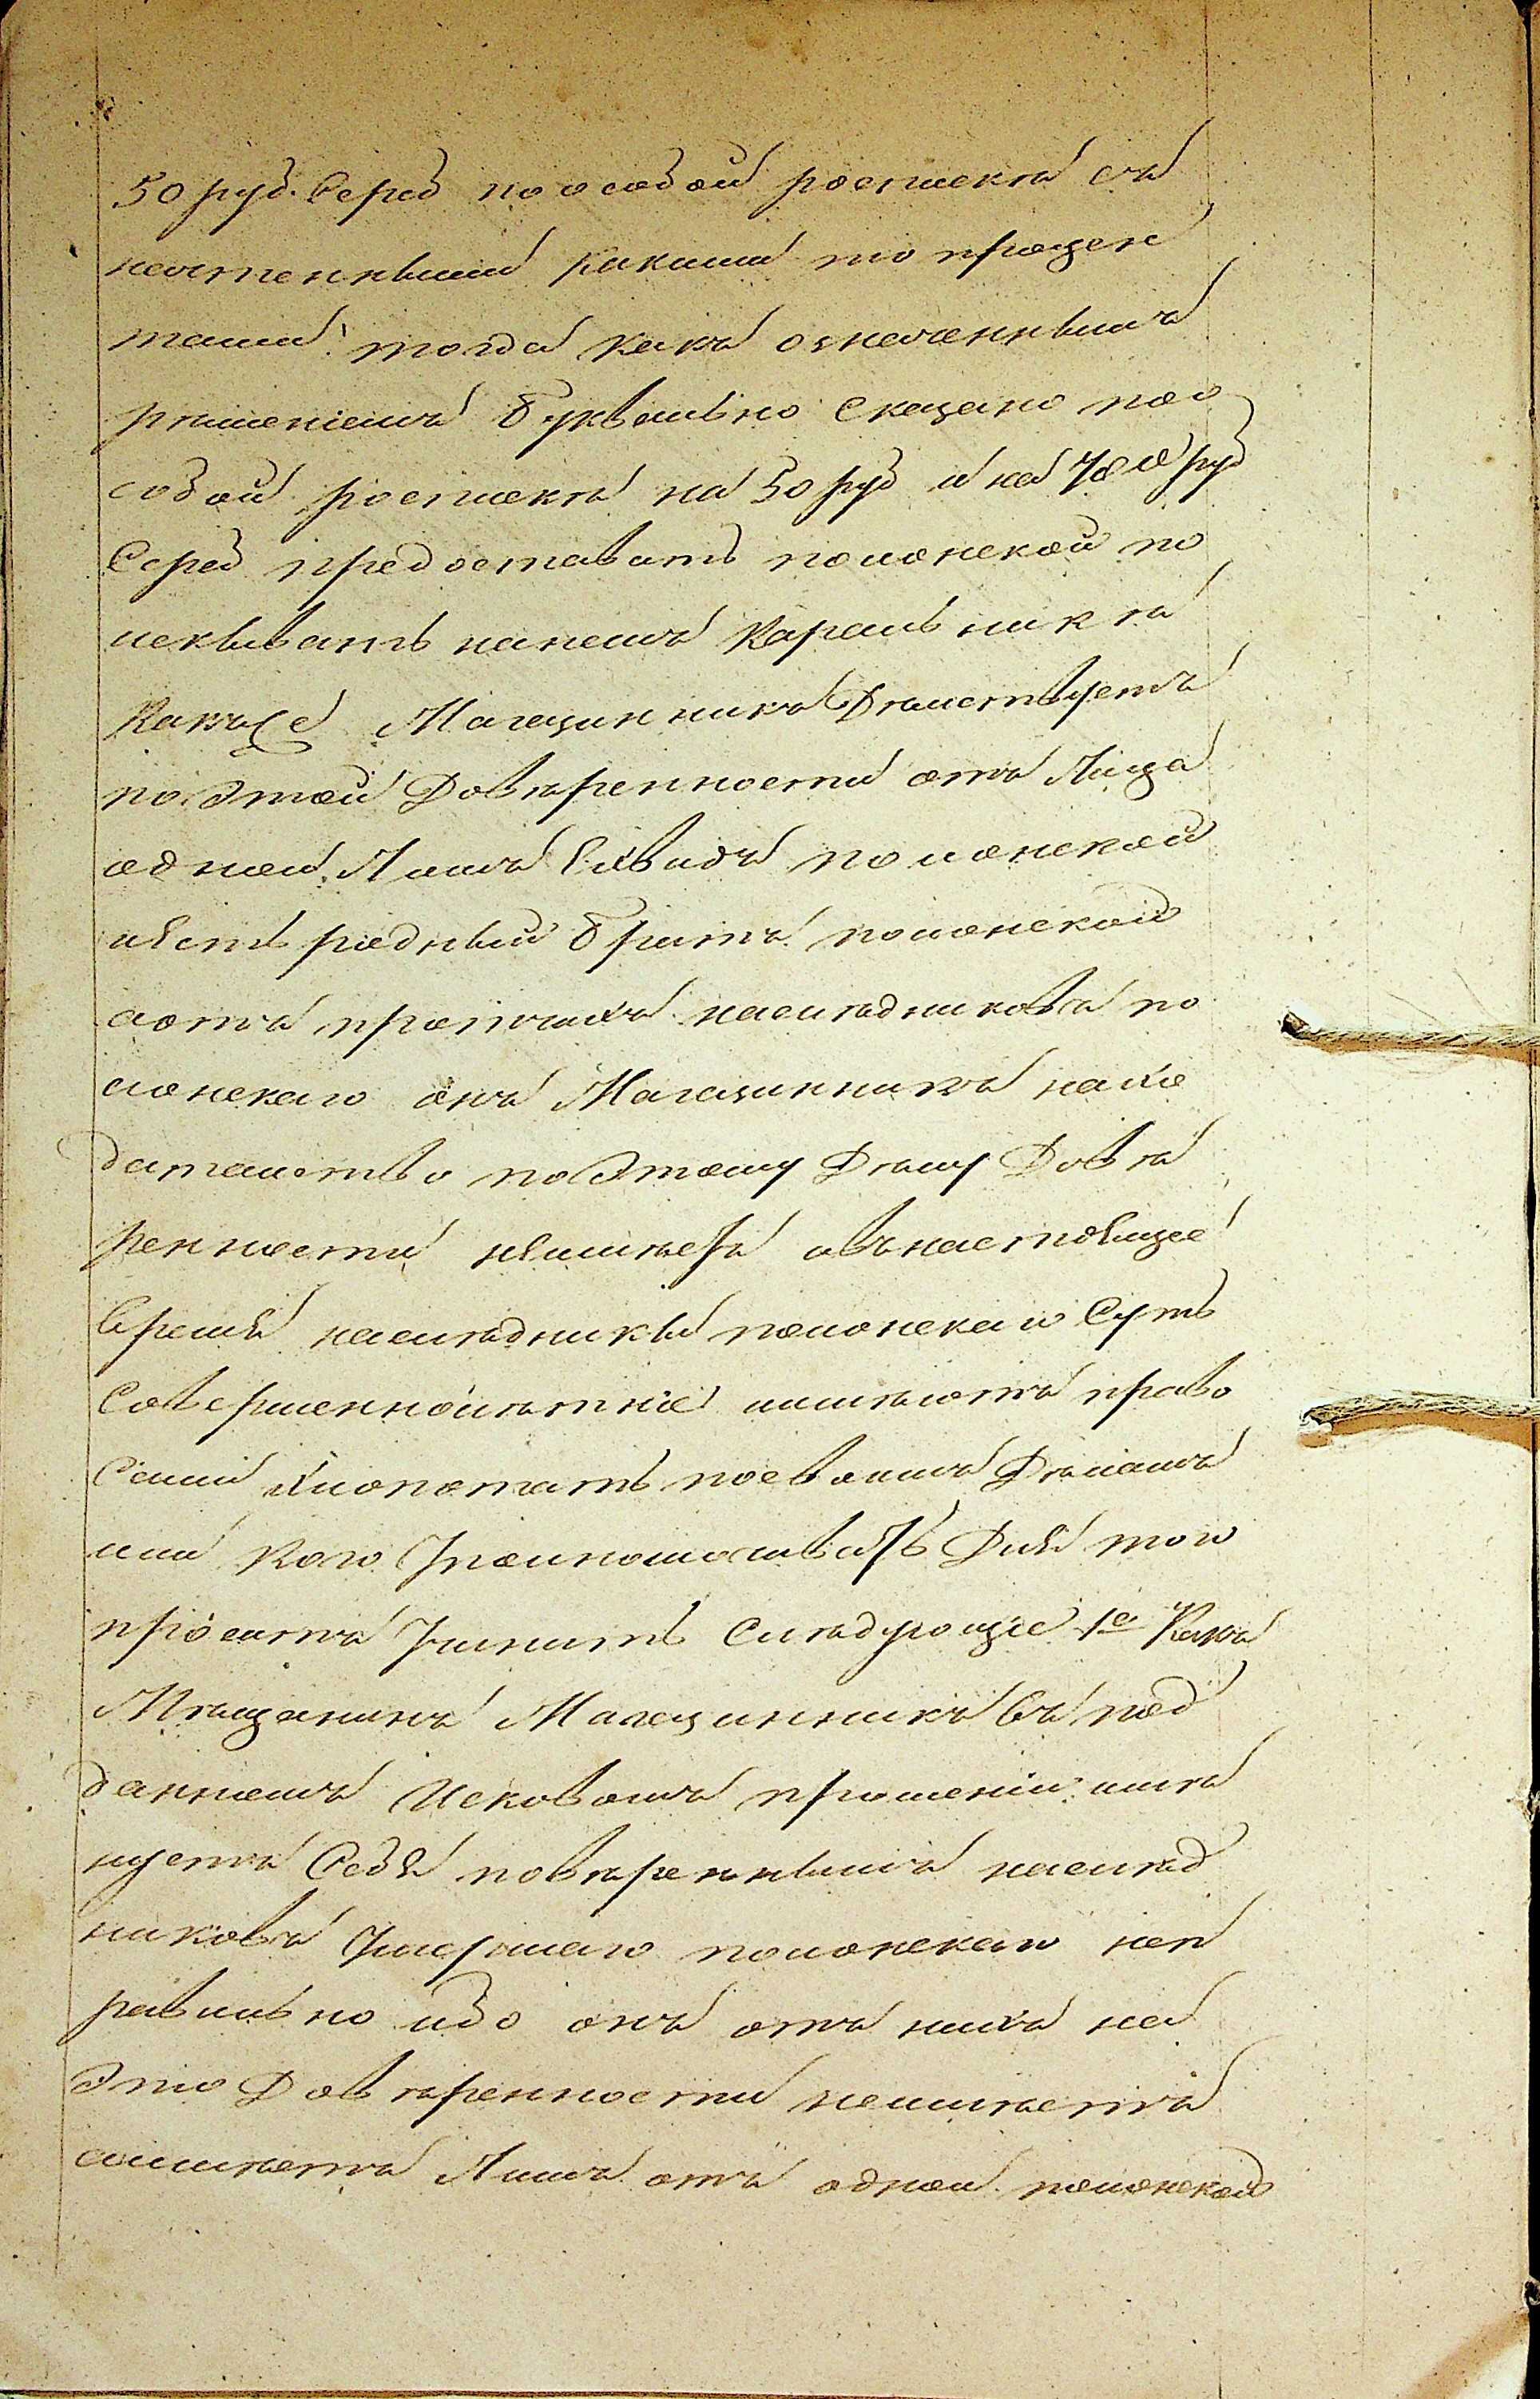 50 руб. Сереб по особой роспискѣ съ
неотенными какими то процен
тами тогда какъ означеннымъ
рѣшеніемъ буквально Сказано поо
собой роспискѣ на 50 руб и на руб
Сереб предоставить полонской по
искывать нанемъ Каральникѣ
Какъже Магазинникъ Дѣйствуетъ
поЭтой Довѣренности отъ Лица
одной Лишъ вдовы полонской
иесть родный братъ полонской
аотъ протчихъ наслѣдниковъ по
лонскаго онъ Магазинникъ нахо
дательство поЭтому Дѣлу Довѣ
ренности неимѣетъ авънастоящее
время наслѣдники полонскаго Суть
Совершеннолѣтніе имѣютъ право
Сами хлопотать посвоимъ Дѣламъ
или кого Уполномочивать Для того
просятъ Учинить Слѣдующіе 1е Какъ
Мѣщанинъ Магазинникъ въ под
данномъ Исковомъ прошеніи имѣ
нуетъ Себя повѣреннымъ наслѣд
никовъ Умершаго полонскаго неп
равильно ибо онъ отъ нихъ на
Это Довѣренности неимѣетъ
аимѣетъ Лишъ отъ одной полонской